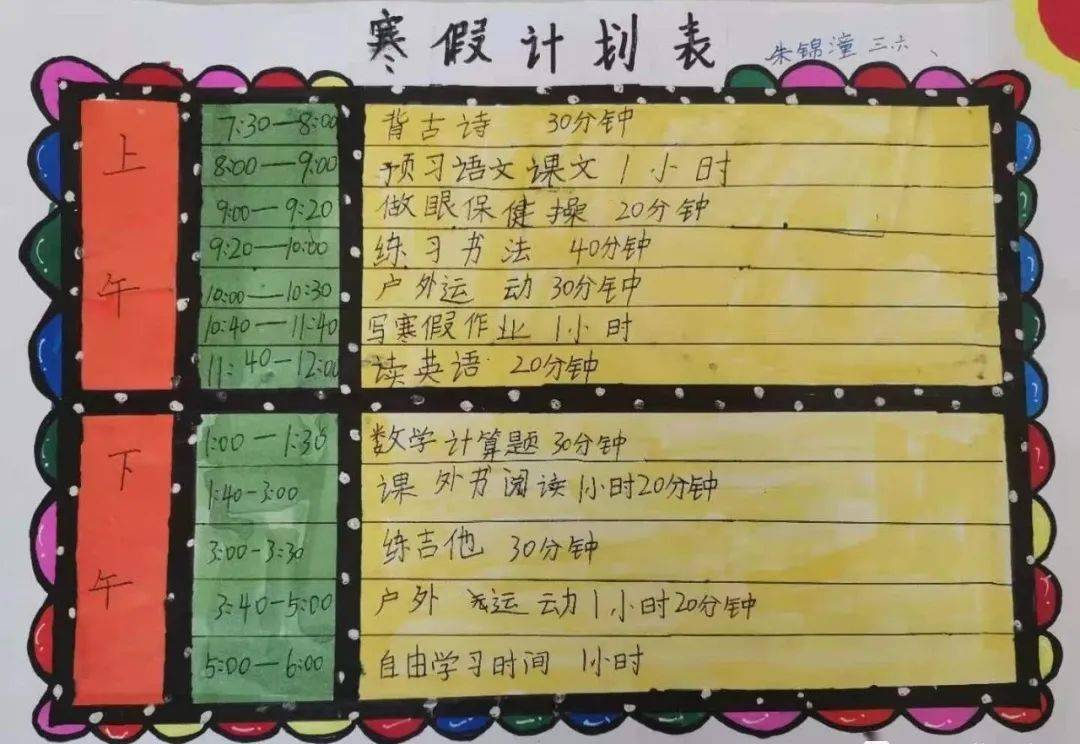 寒假计划表
朱锦潼 三六、
上午
7:30—8:00 背古诗 30分钟
8:00—9:00 预习语文课文 1小时
9:00—9:20 做眼保健操 20分钟
9:20—10:00 练习书法 40分钟
10:00—10:30 户外运动 30分钟
10:40—11:40 写寒假作业 1小时
11:40—12:00 读英语 20分钟
下午
1:00—1:30 数学计算题 30分钟
1:40-3:00 课外书阅读 1小时20分钟
3:00-3:30 练吉他 30分钟
3:40-5:00 户外运动 1小时20分钟
5:00—6:00 自由学习时间 1小时